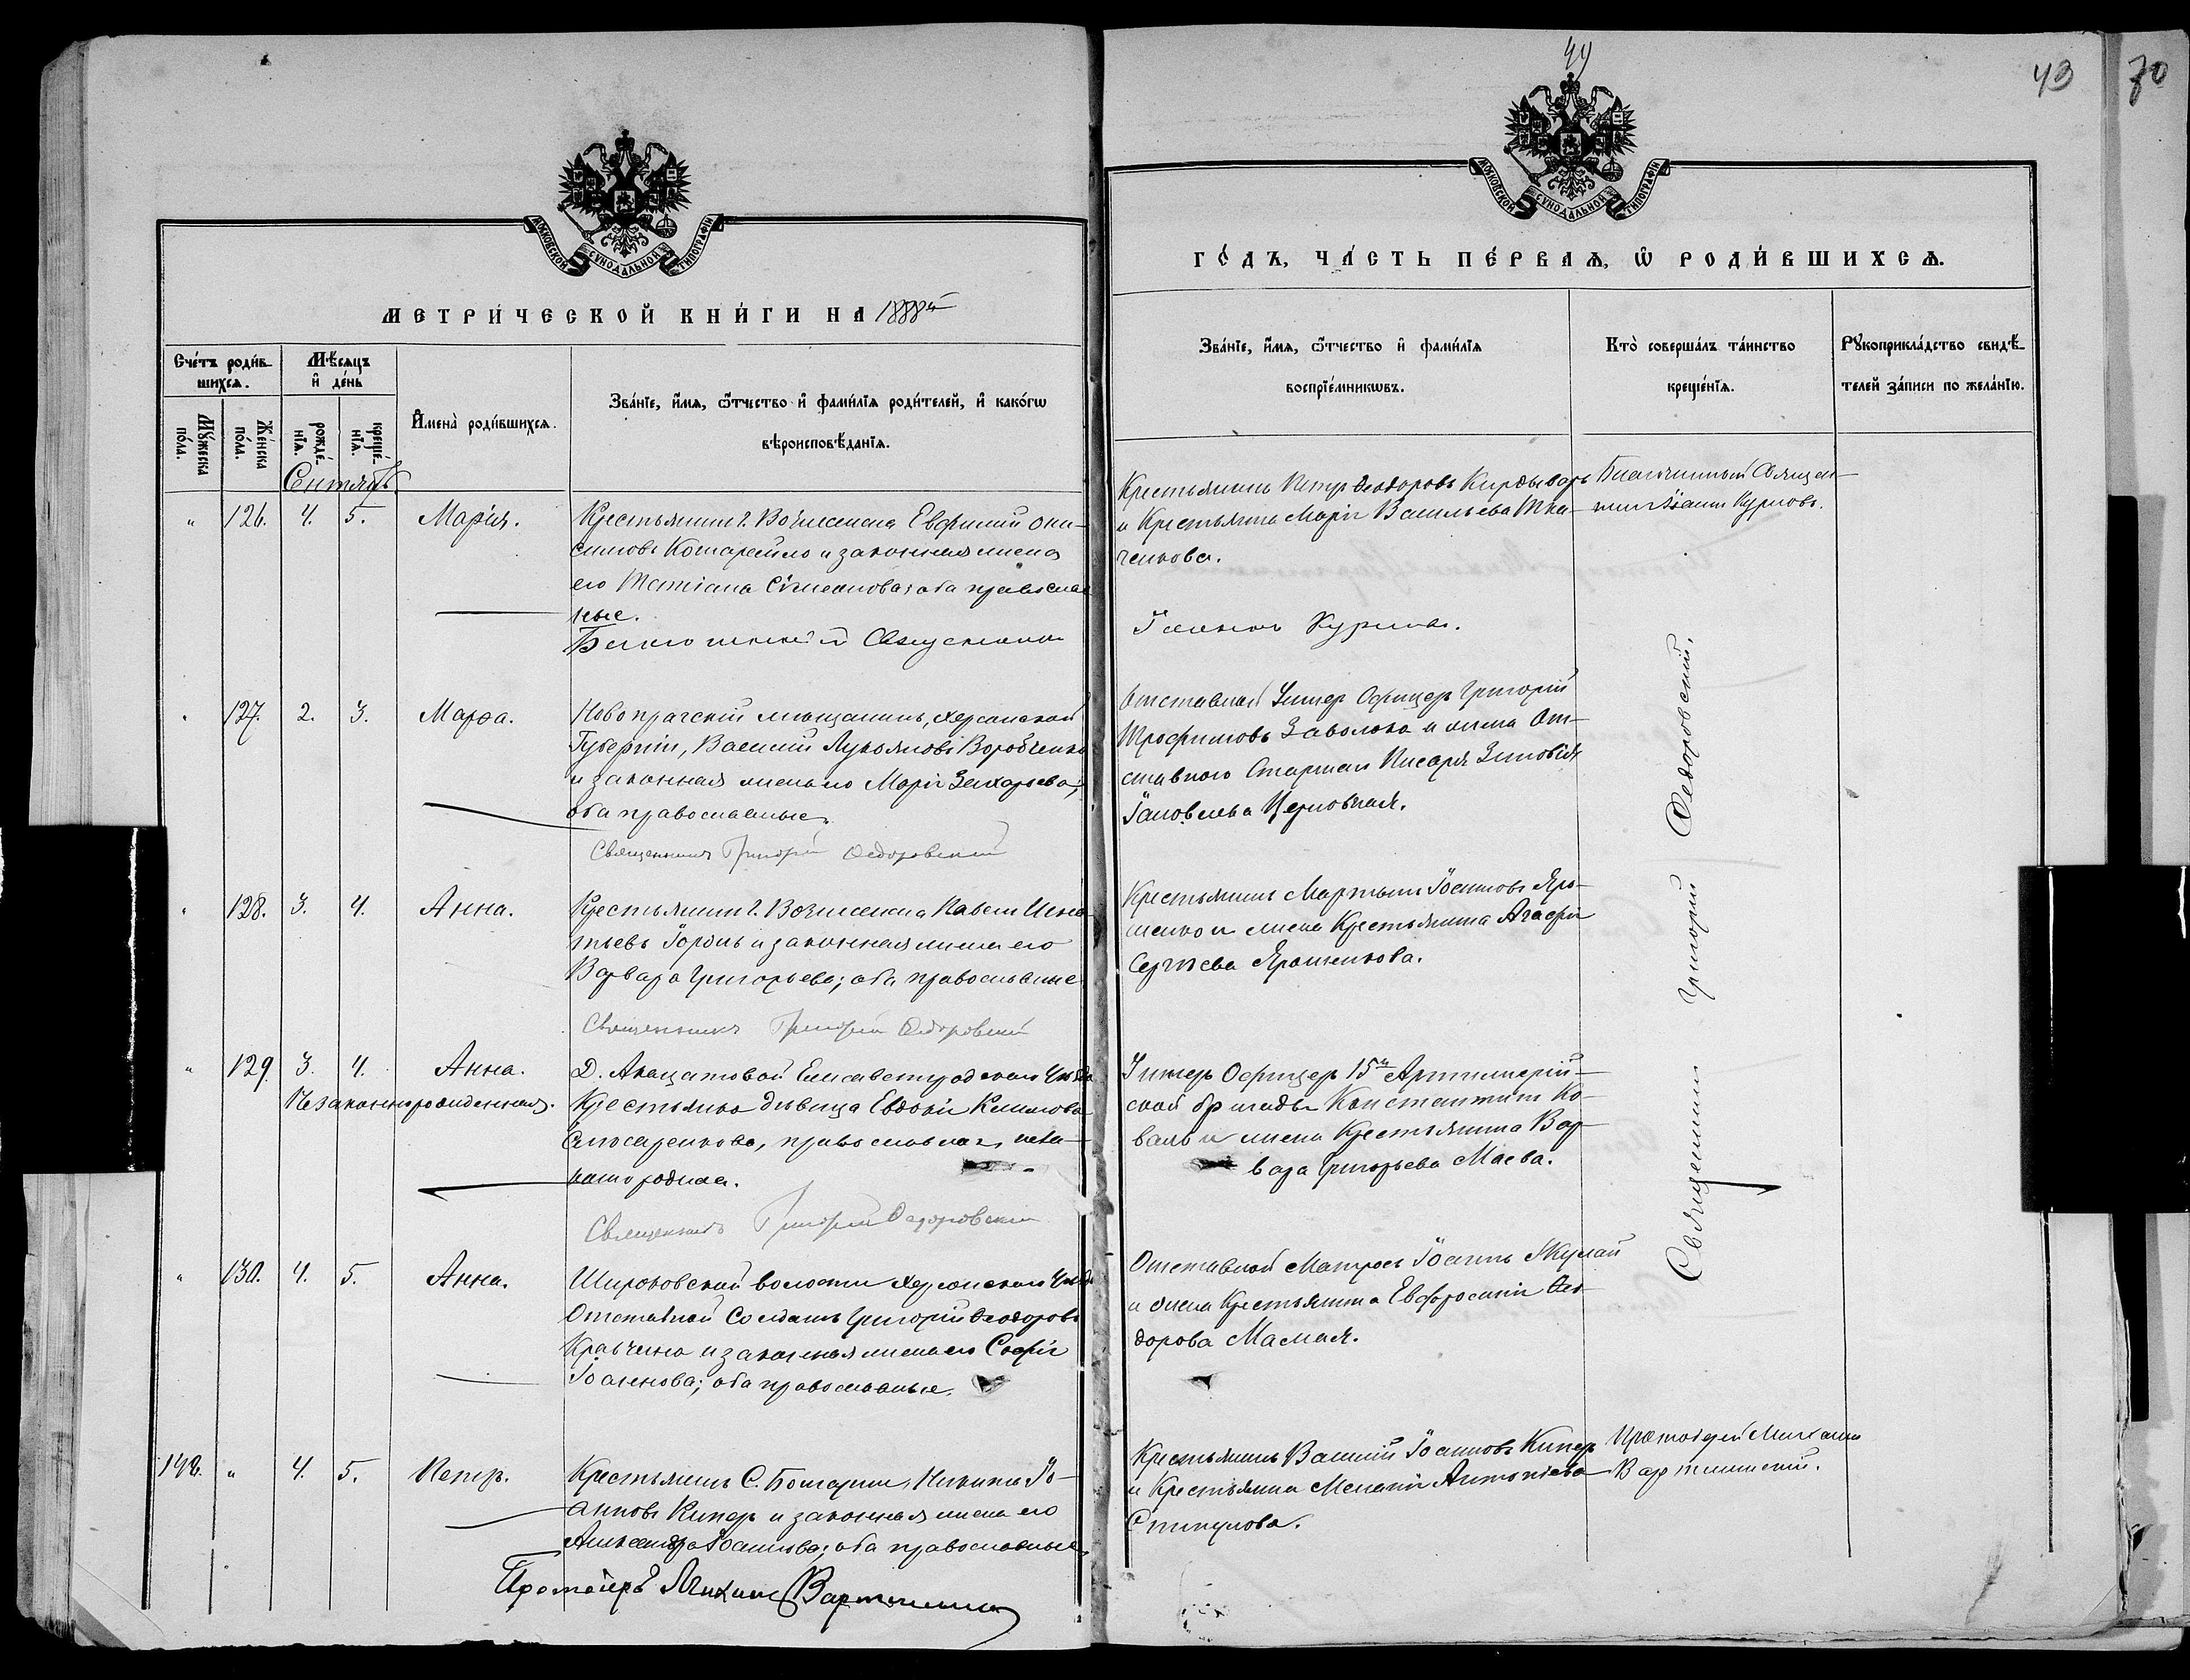 49
43
70
МОСКОВСКОЙ СѴНОДАЛЬНОЙ ТИПОГРАФІИ
МОСКОВСКОЙ СѴНОДАЛЬНОЙ ТИПОГРАФІИ
МЕТРИ́ЧЕСКОЙ КНИ́ГИ НА 1888й
ГО́ДЪ, ЧА́СТЬ ПЕ́РВАѦ, Ѡ РОДИ́ВШИХСѦ.
Сче́тъ роди́в-
шихсѧ.
Мѣ́сѧцъ
и҆ де́нь
Мꙋ́жеска по́ла.
Же́нска по́ла.
рожде́-нїѧ.
креще́-нїѧ.
И҆мена̀ роди́вшихсѧ.
Зва́нїе, и҆́мѧ, ѻ҆́тчество и҆ фами́лїѧ роди́телей, и҆ како́гѡ
вѣроисповѣ́данїѧ.
Зва́нїе, и҆́мѧ, ѻ҆́тчество и҆ фами́лїѧ
воспрїе́мникѡвъ.
Кто̀ соверша́лъ та́инство
креще́нїѧ.
Рꙋкоприкла́дство свидѣ́-
телей за́писи по жела́нїю.
Сентябрь.
" 126. 4. 5. Марія.
Крестьянинъ г. Вознесенска Евфимій Они-
симовъ Котарейло и законная жена
его Татіана Симеонова; оба православ
ные.
Благочинный Священникъ
Крестьянинъ Петръ Ѳеодоровъ Кирдыварь
и Крестьянка Марія Васильева Тка-
ченкова.
Іоаннъ Курловъ.
Благочинный Священ-
никъ Іоаннъ Курловъ.
" 127. 2. 3. Марѳа.
Новопрагскій мѣщанинъ, Херсонской
Губерніи, Василій Лукояновъ Воробченко
и законная жена его Марія Захарьева;
оба православные.
Священникъ Григорій Ѳедоровскій
Отставной Унтер Офицеръ Григорій
Трофимовъ Заволока и жена От-
ставного Старшаго Писаря Зиновія
Іаковлева Церковная.
" 128. 3. 4. Анна.
Крестьянинъ г. Вознесенска Павелъ Игна-
тьевъ Гордъ и законная жена его
Варвара Григорьева; оба православные
Священникъ Григорій Ѳедоровскій
Крестьянинъ Мартынъ Іоанновъ Яро-
шенко и жена Крестьянина Агафія
Сергѣева Ярошенкова.
" 129. 3. 4. Анна.
Незаконнорожденная.
Д. Акацатовой Елисаветградскаго Уѣзда
Крестьянка дѣвица Евдокія Климова
Слюсаренкова, православная,
Священникъ Григорій Ѳедоровскій
Унтеръ Офицеръ 15й Артиллерій-
ской бригады Константинъ Ко-
валь и жена Крестьянина Вар-
вара Григорьева Маева.
" 130. 4. 5. Анна.
Широковской волости Херсонскаго Уѣзда
Отставной Солдатъ Григорій Ѳеодоровъ
Кравченко и законная жена его Софія
Іоаннова; оба православные.
Отставной Матросъ Іоаннъ Жулай
и жена Крестьянина Евфросинія Ѳео-
дорова Мамая.
Священникъ Григорій Ѳедоровскій.
142. " 4. 5. Петръ.
Крестьянинъ С. Болгарки, Никита Іо-
анновъ Киперъ и законная жена его
Александра Іоаннова; оба православные.
Протоіерей Михаилъ Вартминскій
Крестьянинъ Василій Іоанновъ Киперъ
и Крестьянка Меланія Антоніева
Стикулова.
Протоіерей Михаилъ
Вартминскій.